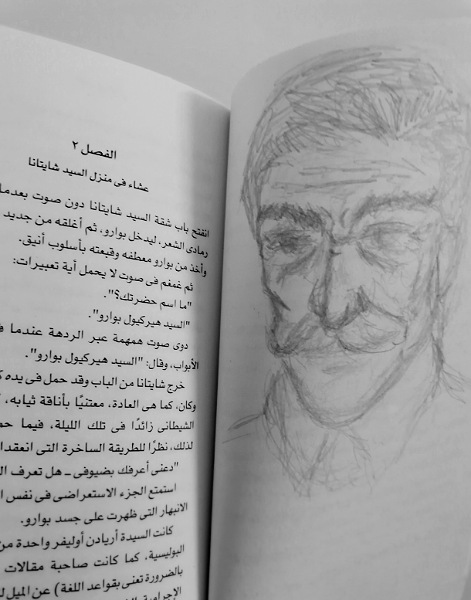 الفصل ٢
عشاء فى منزل السيد شايتانا
انفتح باب شقة السيد شايتانا دون صوت بعدما
رمادى الشعر، ليدخل بوارو، ثم أغلقه من جديد
وأخذ من بوارو معطفه وقبعته بأسلوب أنيق.
ثم غمغم فى صوت لا يحمل أية تعبيرات:
"ما اسم حضرتك؟".
"السيد هيركيول بوارو".
دوى صوت همهمة عبر الردهة عندما
الأبواب، وقال: "السيد هيركيول بوارو".
خرج شايتانا من الباب وقد حمل فى يده
وكان، كما هى العادة، معتنيًا بأناقة ثيابه،
الشيطانى زائدًا فى تلك الليلة، فيما
لذلك، نظرًا للطريقة الساخرة التى انعقدا
"دعنى أعرفك بضيوفى ـ هل تعرف
استمتع الجزء الاستعراضى فى نفس
الانبهار التى ظهرت على جسد بوارو.
كانت السيدة أريادن أوليفر واحدة من
البوليسية، كما كانت صاحبة مقالات
بالضرورة تعنى بقواعد اللغة) عن الميل